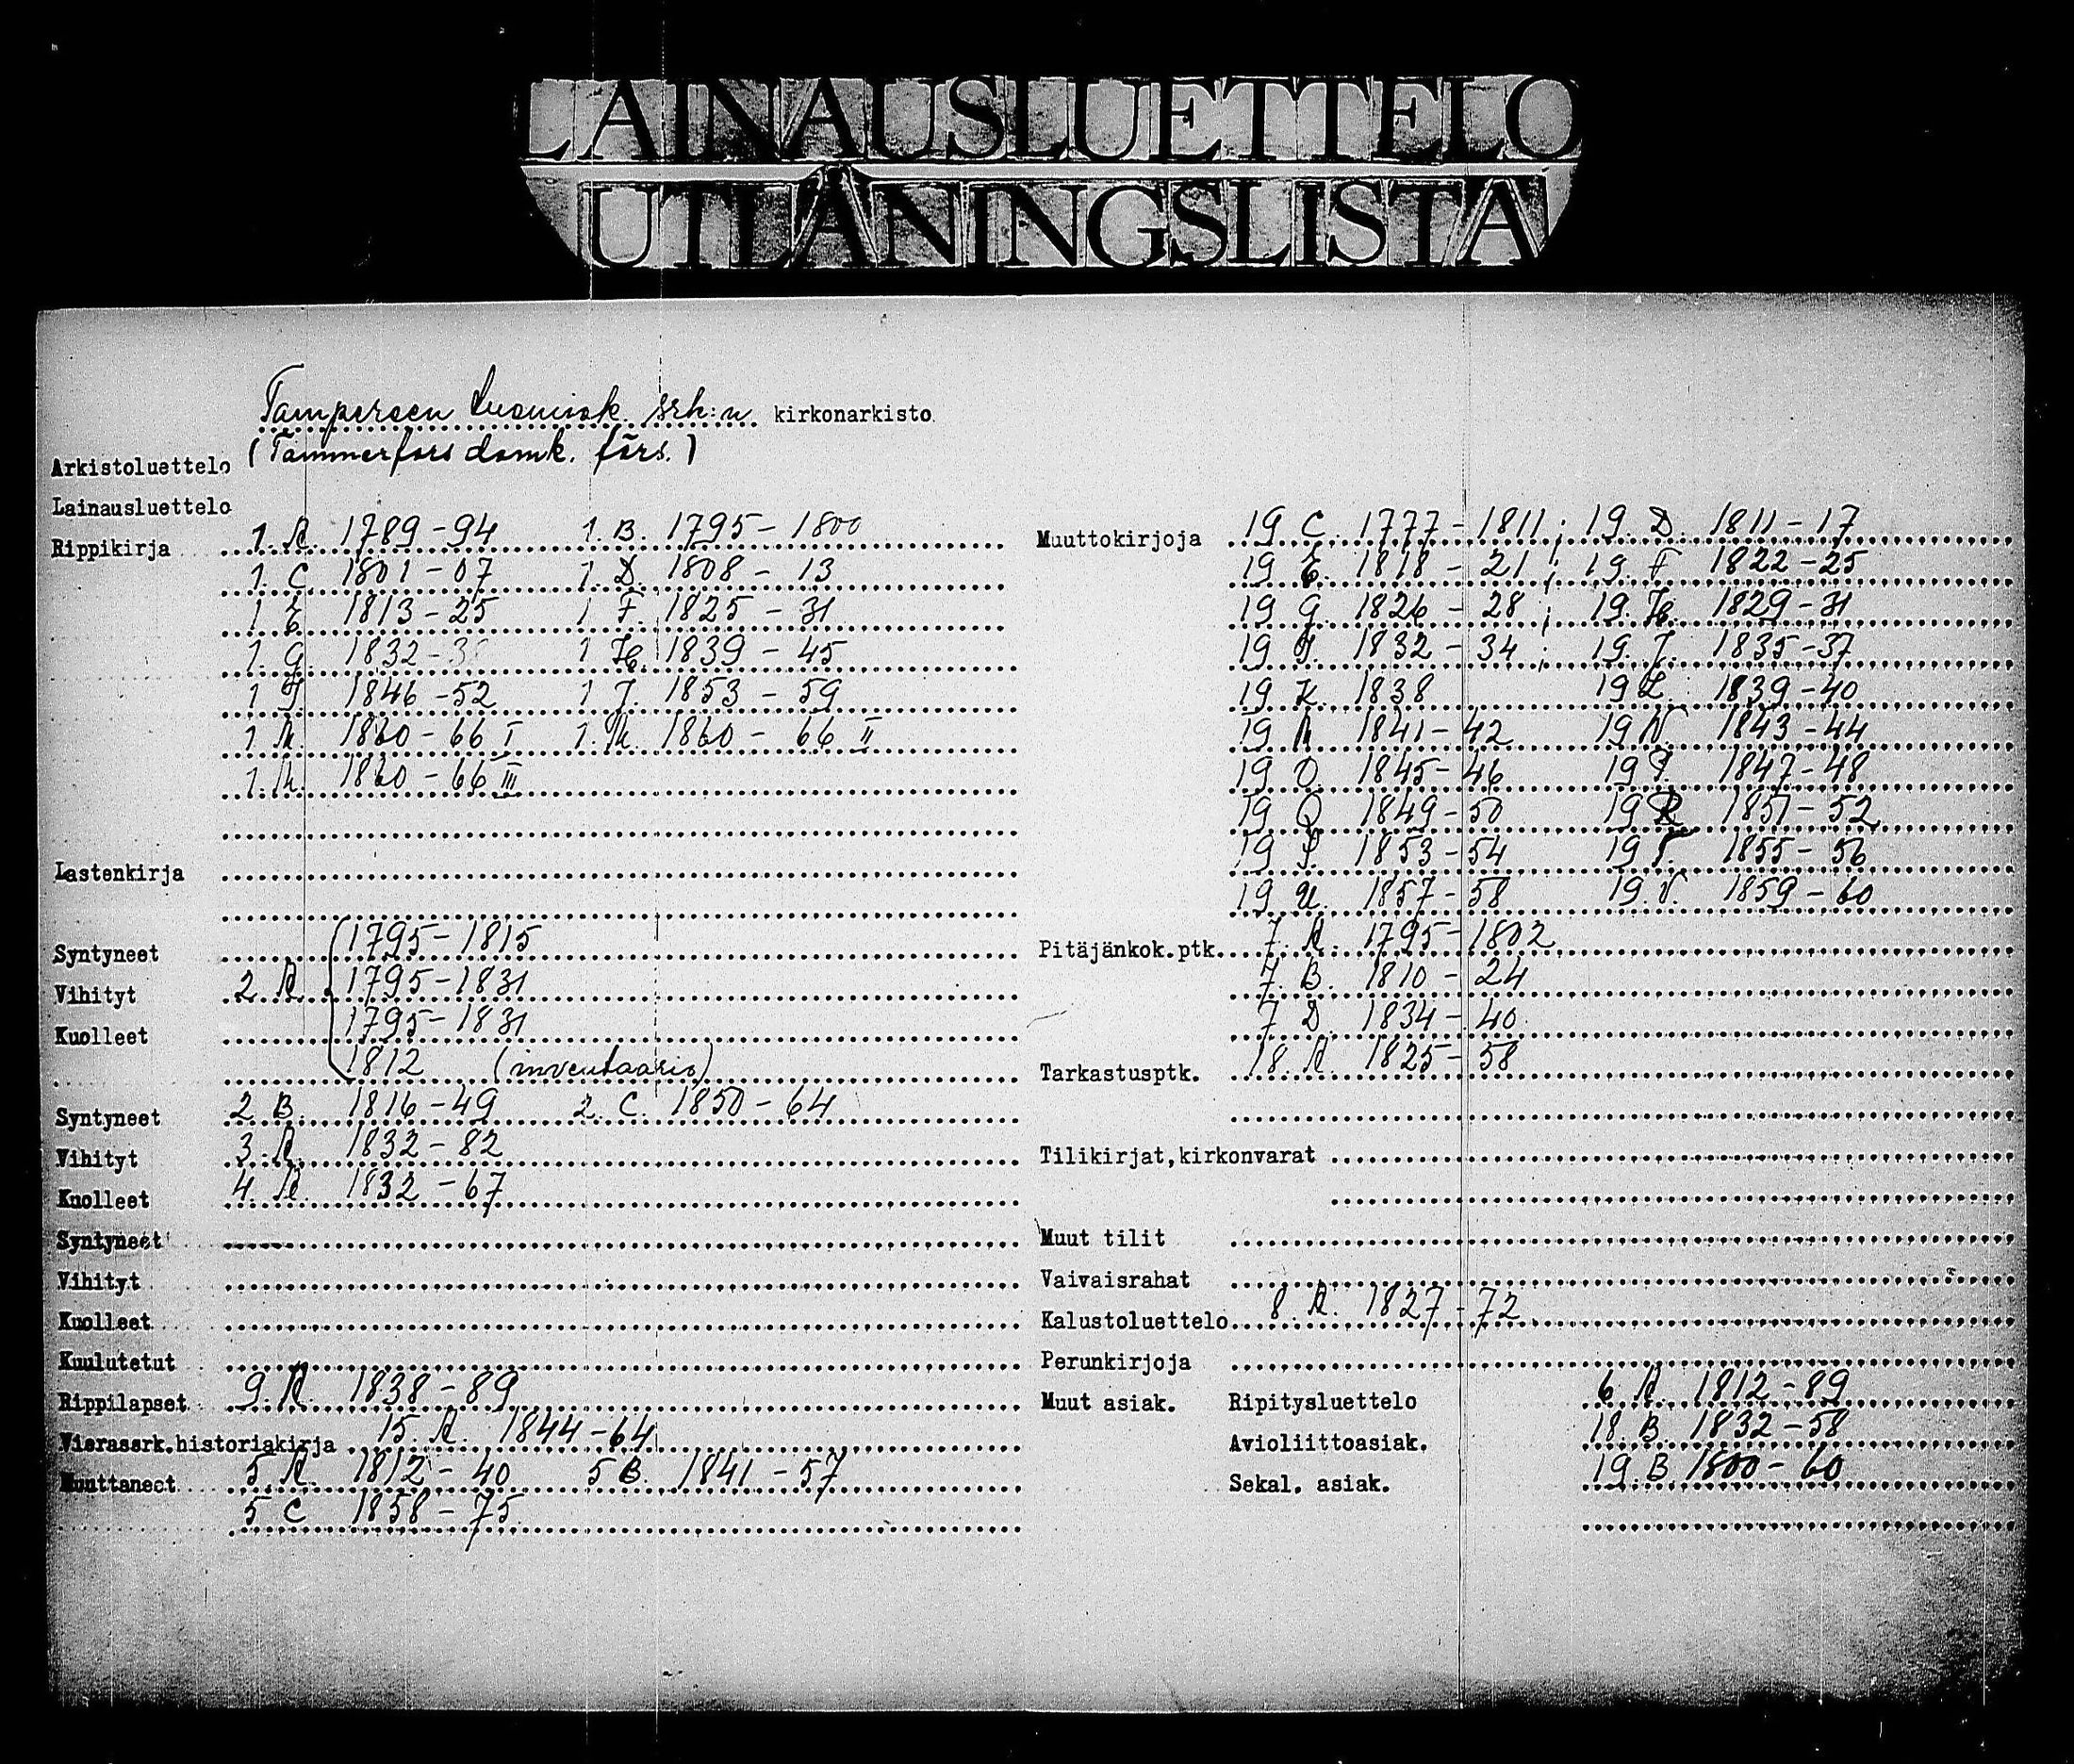 LAINAUSLUETTELO
UTLÅNINGSLISTA
Tampereen tuomiok. srh:n kirkonarkisto
(Tammerfors domk. förs.)
Arkistoluettelo
Lainausluettelo
Rippikirja 1. A. 1789-94 1. B. 1795-1800
1. C. 1801-07 1. D. 1808-13
1 E 1813-25 1 F. 1825-31
1. G. 1832- 1 H. 1839-45
1 I 1846-52 1 J. 1853-59
1. K. 1860-66 I 1. K. 1860-66 II
1. K. 1860-66 III
Lastenkirja
Syntyneet 1795-1815
Vihityt 2 A 1795-1831
Kuolleet 1795-1831
1812 (inventaario)
Syntyneet 2 B. 1816-49 2. C. 1850-64
Vihityt 3. A. 1832-82
Kuolleet 4. A. 1832-67
Syntyneet
Vihityt
Kuolleet
Kuulutetut
Rippilapset 9. A. 1838-89
Vierassrk.historiakirja 15. A. 1844-64
Muuttaneet 5. A. 1812-40 5 B. 1841-57
5 C 1858-75
Muuttokirjoja 19 C. 1777-1811; 19. D. 1811-17
19 E. 1818-21; 19. F 1822-25
19 G. 1826-28; 19. H. 1829-31
19 I. 1832-34; 19. J. 1835-37
19 K. 1838 19 L. 1839-40
19 M 1841-42 19 N. 1843-44
19 O. 1845-46 19 P. 1847-48
19 Q 1849-50 19 R 1851-52
19 S. 1853-54 19 T. 1855-56
19 U. 1857-58 19. V. 1859-60
Pitäjänkok.ptk. 7. A. 1795-1802
7. B. 1810-24
7 D. 1834-40
Tarkastusptk. 18. A. 1825-58
Tilikirjat,kirkonvarat
Muut tilit
Vaivaisrahat
Kalustoluettelo 8 A. 1827-72
Perunkirjoja
Muut asiak. Ripitysluettelo 6 A. 1812-89
Avioliittoasiak. 18. B. 1832-58
Sekal. asiak. 19. B. 1800-60